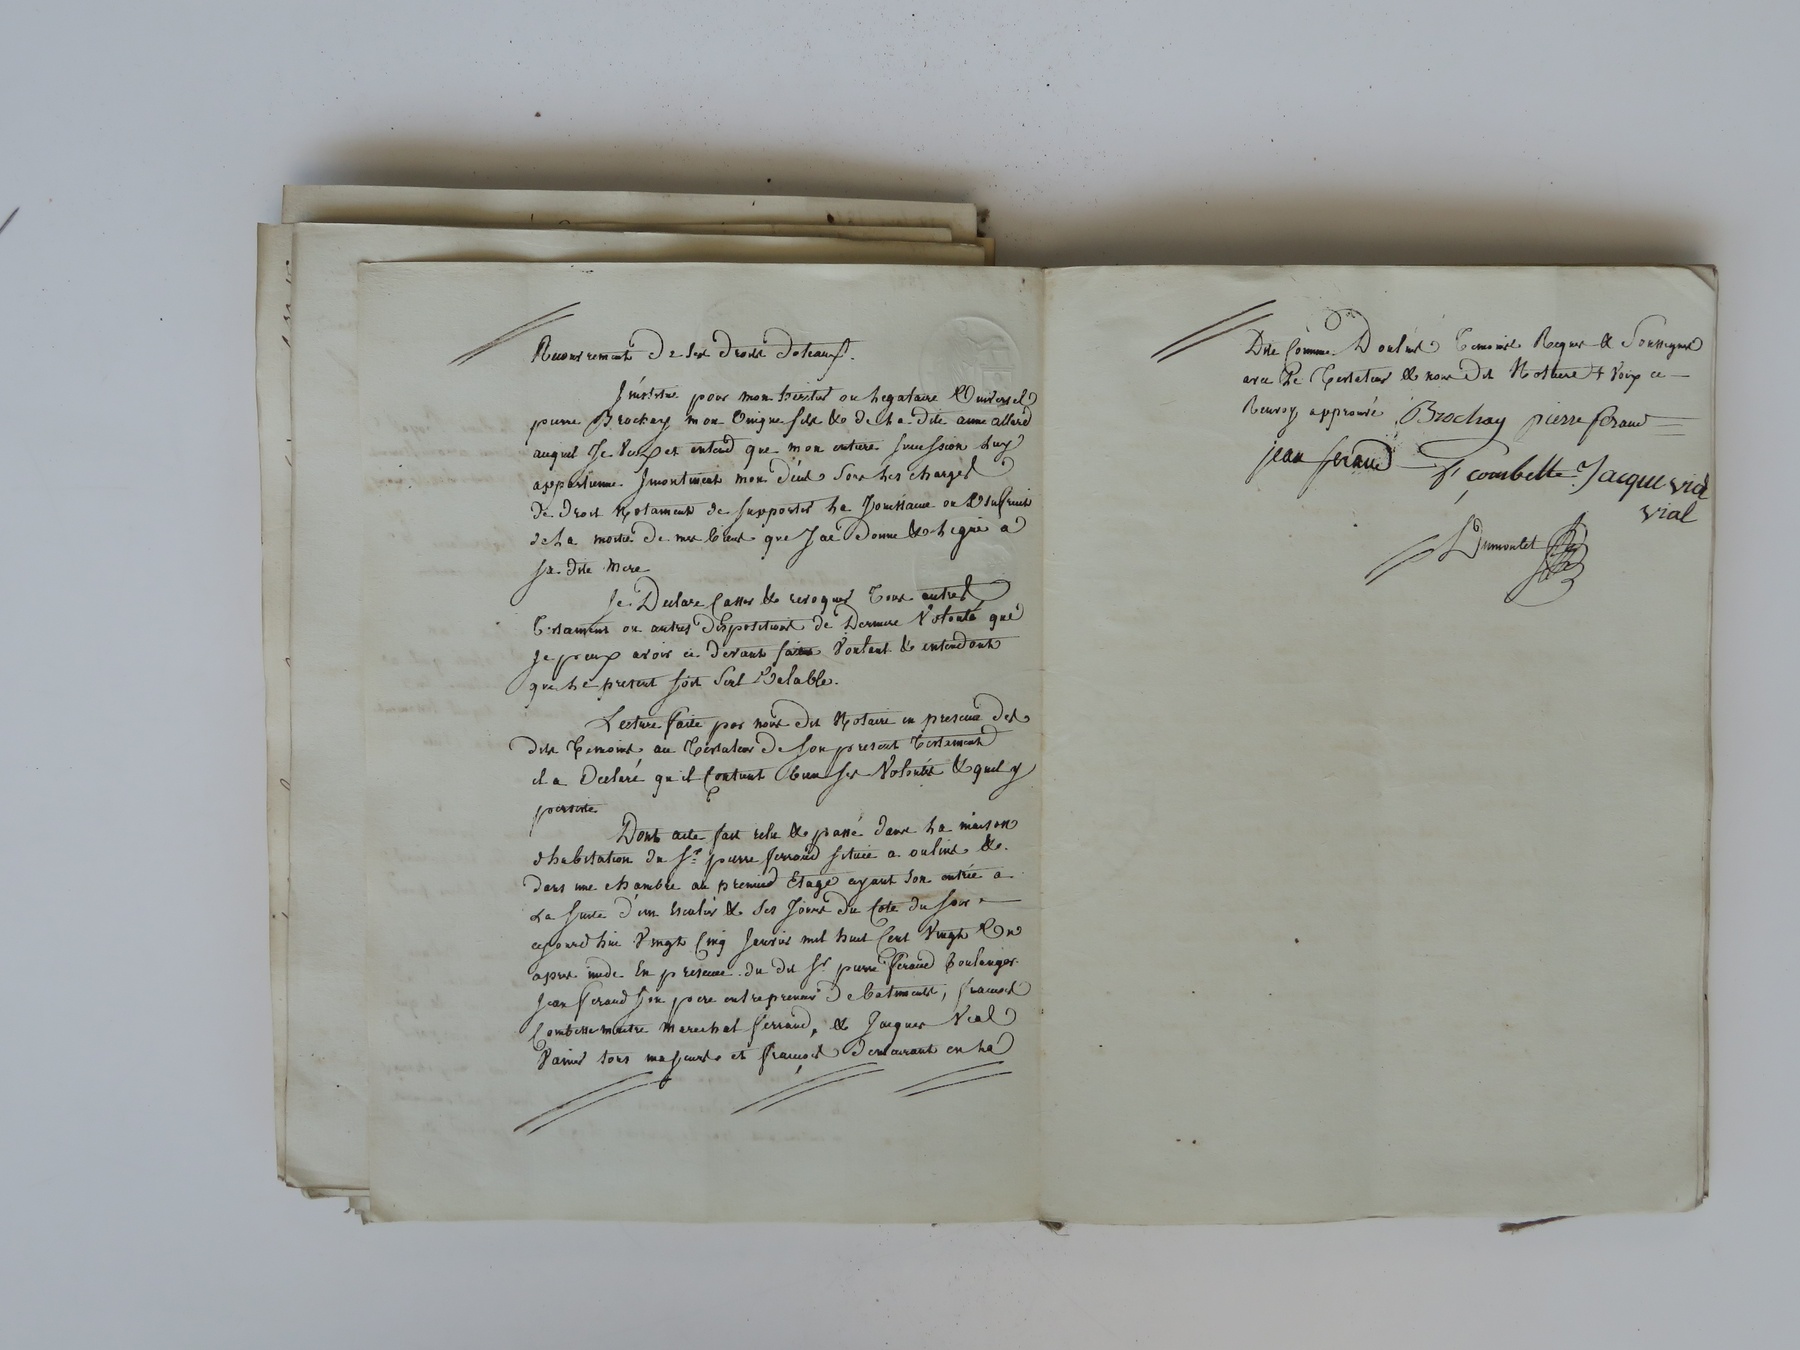 Recouvrement de ses droits dotaux.
Jnstitue pour mon heritier ou Legataire Universel
pierre Brochay mon Unique fils & de La dite anne allard
auquel Je Veux et entend que mon entiere succession Luy
appartienne Jmontinent mon déced sous Les charges
de droit Notament de supporter La Jouissance ou Usufruit
de La moitié de mes biens que J'aé donné & Legué a
sa dite Mere
Je Declare Casser & revoquer Tous autres
Testament ou autres dispositions de Derniere Volonté que
Je peux avoir ci devant faites Voulant & entendant
que Le present soit seul Valable.
Lecture faite par nous dit Notaire en presence des
dits Temoins au Testateur de son present Testement
il a declaré qu'il Contient bien ses Volontés & quil y
persiste
Dont acte fait relu & passé dans La maison
d'habitation du Sr. pierre ferraud située a oulins &
dans une chambre au premier Etage ayant son entrée a
La suite d'un Escalier & ses Jours du Coté du soir
aujourdhui Vingt Cinq Janvier mil huit Cent Vingt Un
apres midi En presence du dit Sr pierre feraud boulanger
Jean feraud son pere entrepreneur de batiments, francois
Combette maitre marechal ferrand, & Jacques Vial
tous majeurs et francois demeurant en La
Dite Comune D'oulins Temoins Requis & Soussignés
avec Le Testateur & nous dit Notaire + Voix ce
Renvoy approuvé Brochay pierre feraud
jean feraud fs combette Jacque vial
vial
Dumoulet